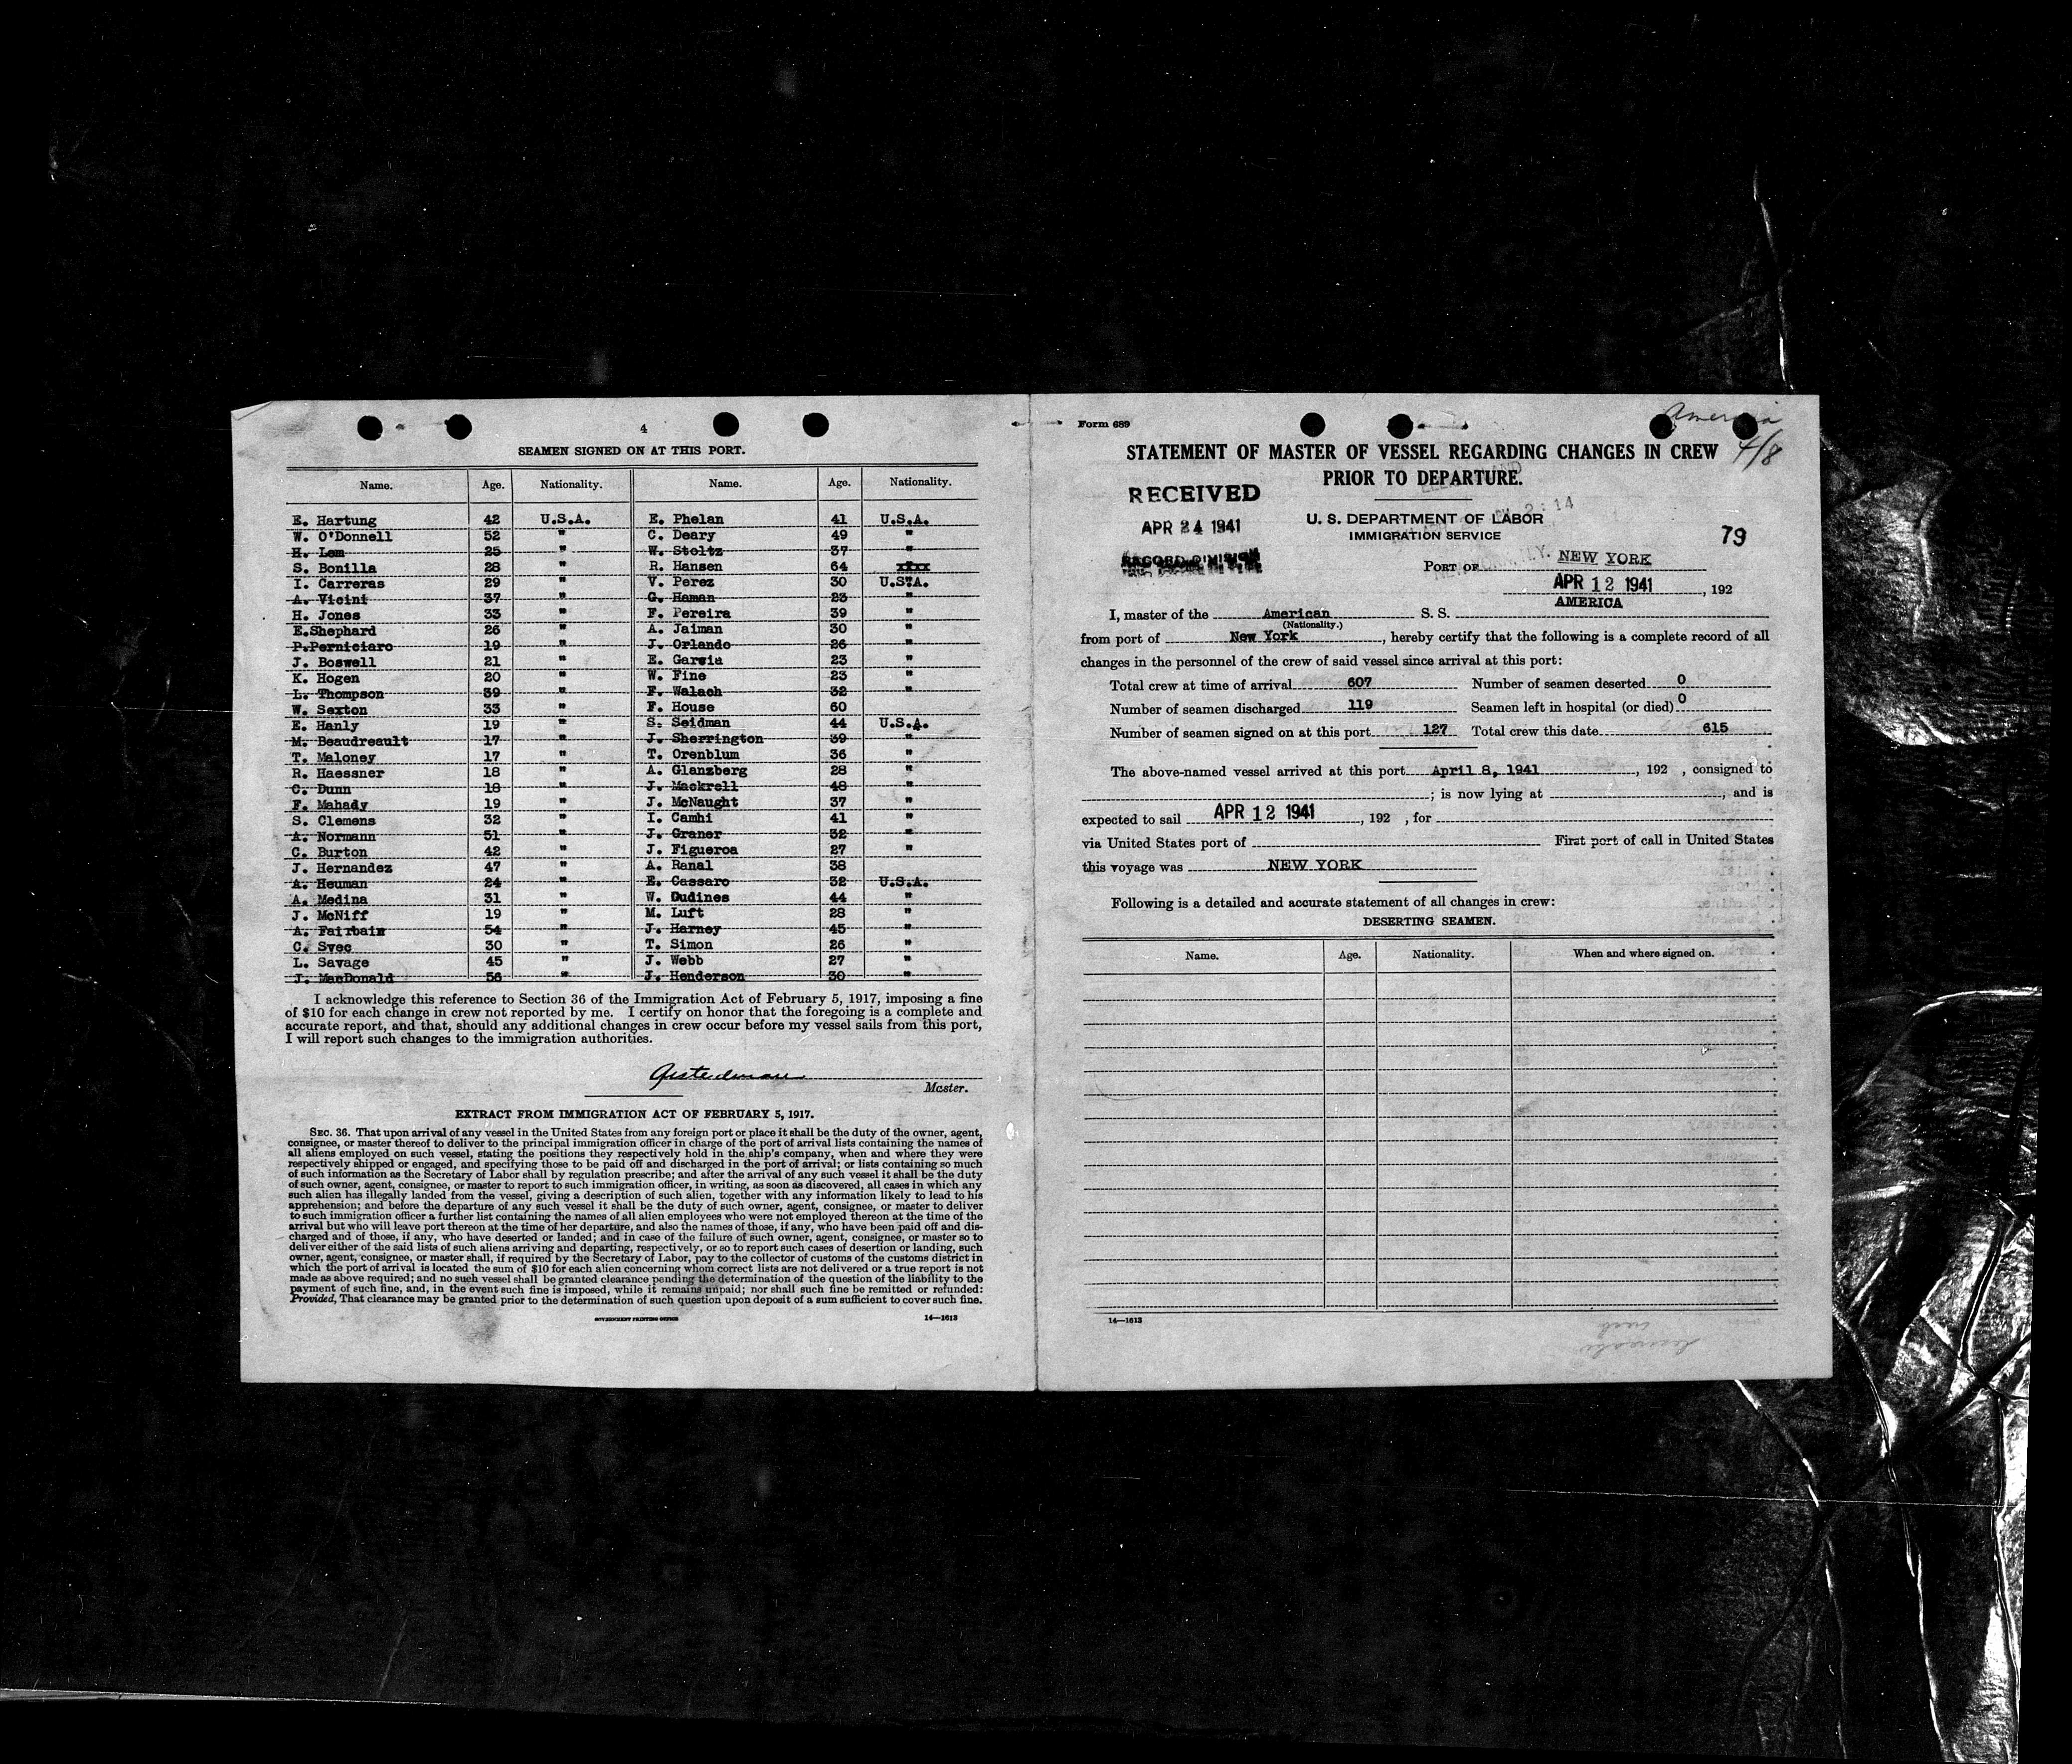 4
SEAMEN SIGNED ON AT THIS PORT.
Name. Age. Nationality. Name. Age. Nationality.
E. Hartung 42 U.S.A. E. Phelan 41 U.S.A.
W. O'Donnell 52 " C. Deary 49 "
H. Lem 25 " W. Stoltz 37 "
S. Bonilla 28 " R. Hansen 64 xxxx
I. Carreras 29 " V. Perez 30 U.S.A.
A. Vicini 37 " G. Haman 23 "
H. Jones 33 " F. Pereira 39 "
E.Shephard 26 " A. Jaiman 30 "
P.Perniciaro 19 " J. Orlando 26 "
J. Boswell 21 " E. Garcia 23 "
K. Hogen 20 " W. Fine 23 "
L. Thompson 39 " F. Walach 32 "
W. Sexton 33 " F. House 60
E. Hanly 19 " S. Seidman 44 U.S.A.
M. Beaudreault 17 " J. Sherrington 39 "
T. Maloney 17 " T. Orenblum 36 "
R. Haessner 18 " A. Glanzberg 28 "
C. Dunn 18 " J. Mackrell 48 "
F. Mahady 19 " J. McNaught 37 "
S. Clemens 32 " I. Camhi 41 "
A. Normann 51 " J. Graner 32 "
C. Burton 42 " J. Figueroa 27 "
J. Hernandez 47 " A. Renal 38
A. Heuman 24 " E. Cassaro 32 U.S.A.
A. Medina 31 " W. Dudines 44 "
J. McNiff 19 " M. Luft 28 "
A. Fairbain 54 " J. Harney 45 "
C. Svec 30 " T. Simon 26 "
L. Savage 45 " J. Webb 27 "
J. MacDonald 56 " J. Henderson 30 "
I acknowledge this reference to Section 36 of the Immigration Act of February 5, 1917, imposing a fine
of $10 for each change in crew not reported by me. I certify on honor that the foregoing is a complete and
accurate report, and that, should any additional changes in crew occur before my vessel sails from this port,
I will report such changes to the immigration authorities.
Master.
EXTRACT FROM IMMIGRATION ACT OF FEBRUARY 5, 1917.
SEC. 36. That upon arrival of any vessel in the United States from any foreign port or place it shall be the duty of the owner, agent,
consignee, or master thereof to deliver to the principal immigration officer in charge of the port of arrival lists containing the names of
all aliens employed on such vessel, stating the positions they respectively hold in the ship's company, when and where they were
respectively shipped or engaged, and specifying those to be paid off and discharged in the port of arrival; or lists containing so much
of such information as the Secretary of Labor shall by regulation prescribe; and after the arrival of any such vessel it shall be the duty
of such owner, agent, consignee, or master to report to such immigration officer, in writing, as soon as discovered, all cases in which any
such alien has illegally landed from the vessel, giving a description of such alien, together with any information likely to lead to his
apprehension; and before the departure of any such vessel it shall be the duty of such owner, agent, consignee, or master to deliver
to such immigration officer a further list containing the names of all alien employees who were not employed thereon at the time of the
arrival but who will leave port thereon at the time of her departure, and also the names of those, if any, who have been paid off and dis-
charged and of those, if any, who have deserted or landed; and in case of the failure of such owner, agent, consignee, or master so to
deliver either of the said lists of such aliens arriving and departing, respectively, or so to report such cases of desertion or landing, such
owner, agent, consignee, or master shall, if required by the Secretary of Labor, pay to the collector of customs of the customs district in
which the port of arrival is located the sum of $10 for each alien concerning whom correct lists are not delivered or a true report is not
made as above required; and no such vessel shall be granted clearance pending the determination of the question of the liability to the
payment of such fine, and, in the event such fine is imposed, while it remains unpaid; nor shall such fine be remitted or refunded:
Provided, That clearance may be granted prior to the determination of such question upon deposit of a sum sufficient to cover such fine.
GOVERNMENT PRINTING OFFICE 14—1613
Form 689
America
4/8
STATEMENT OF MASTER OF VESSEL REGARDING CHANGES IN CREW
PRIOR TO DEPARTURE.
RECEIVED
APR 24 1941
RECORD DIVISION
U. S. DEPARTMENT OF LABOR
IMMIGRATION SERVICE
79
PORT OF NEW YORK
APR 12 1941, 192
I, master of the American S. S. AMERICA
(Nationality.)
from port of New York, hereby certify that the following is a complete record of all
changes in the personnel of the crew of said vessel since arrival at this port:
Total crew at time of arrival 607 Number of seamen deserted 0
Number of seamen discharged 119 Seamen left in hospital (or died) 0
Number of seamen signed on at this port 127 Total crew this date 615
The above-named vessel arrived at this port April 8, 1941, 192 , consigned to
; is now lying at , and is
expected to sail APR 12 1941, 192 , for
via United States port of First port of call in United States
this voyage was NEW YORK
Following is a detailed and accurate statement of all changes in crew:
DESERTING SEAMEN.
Name. Age. Nationality. When and where signed on.
14—1613